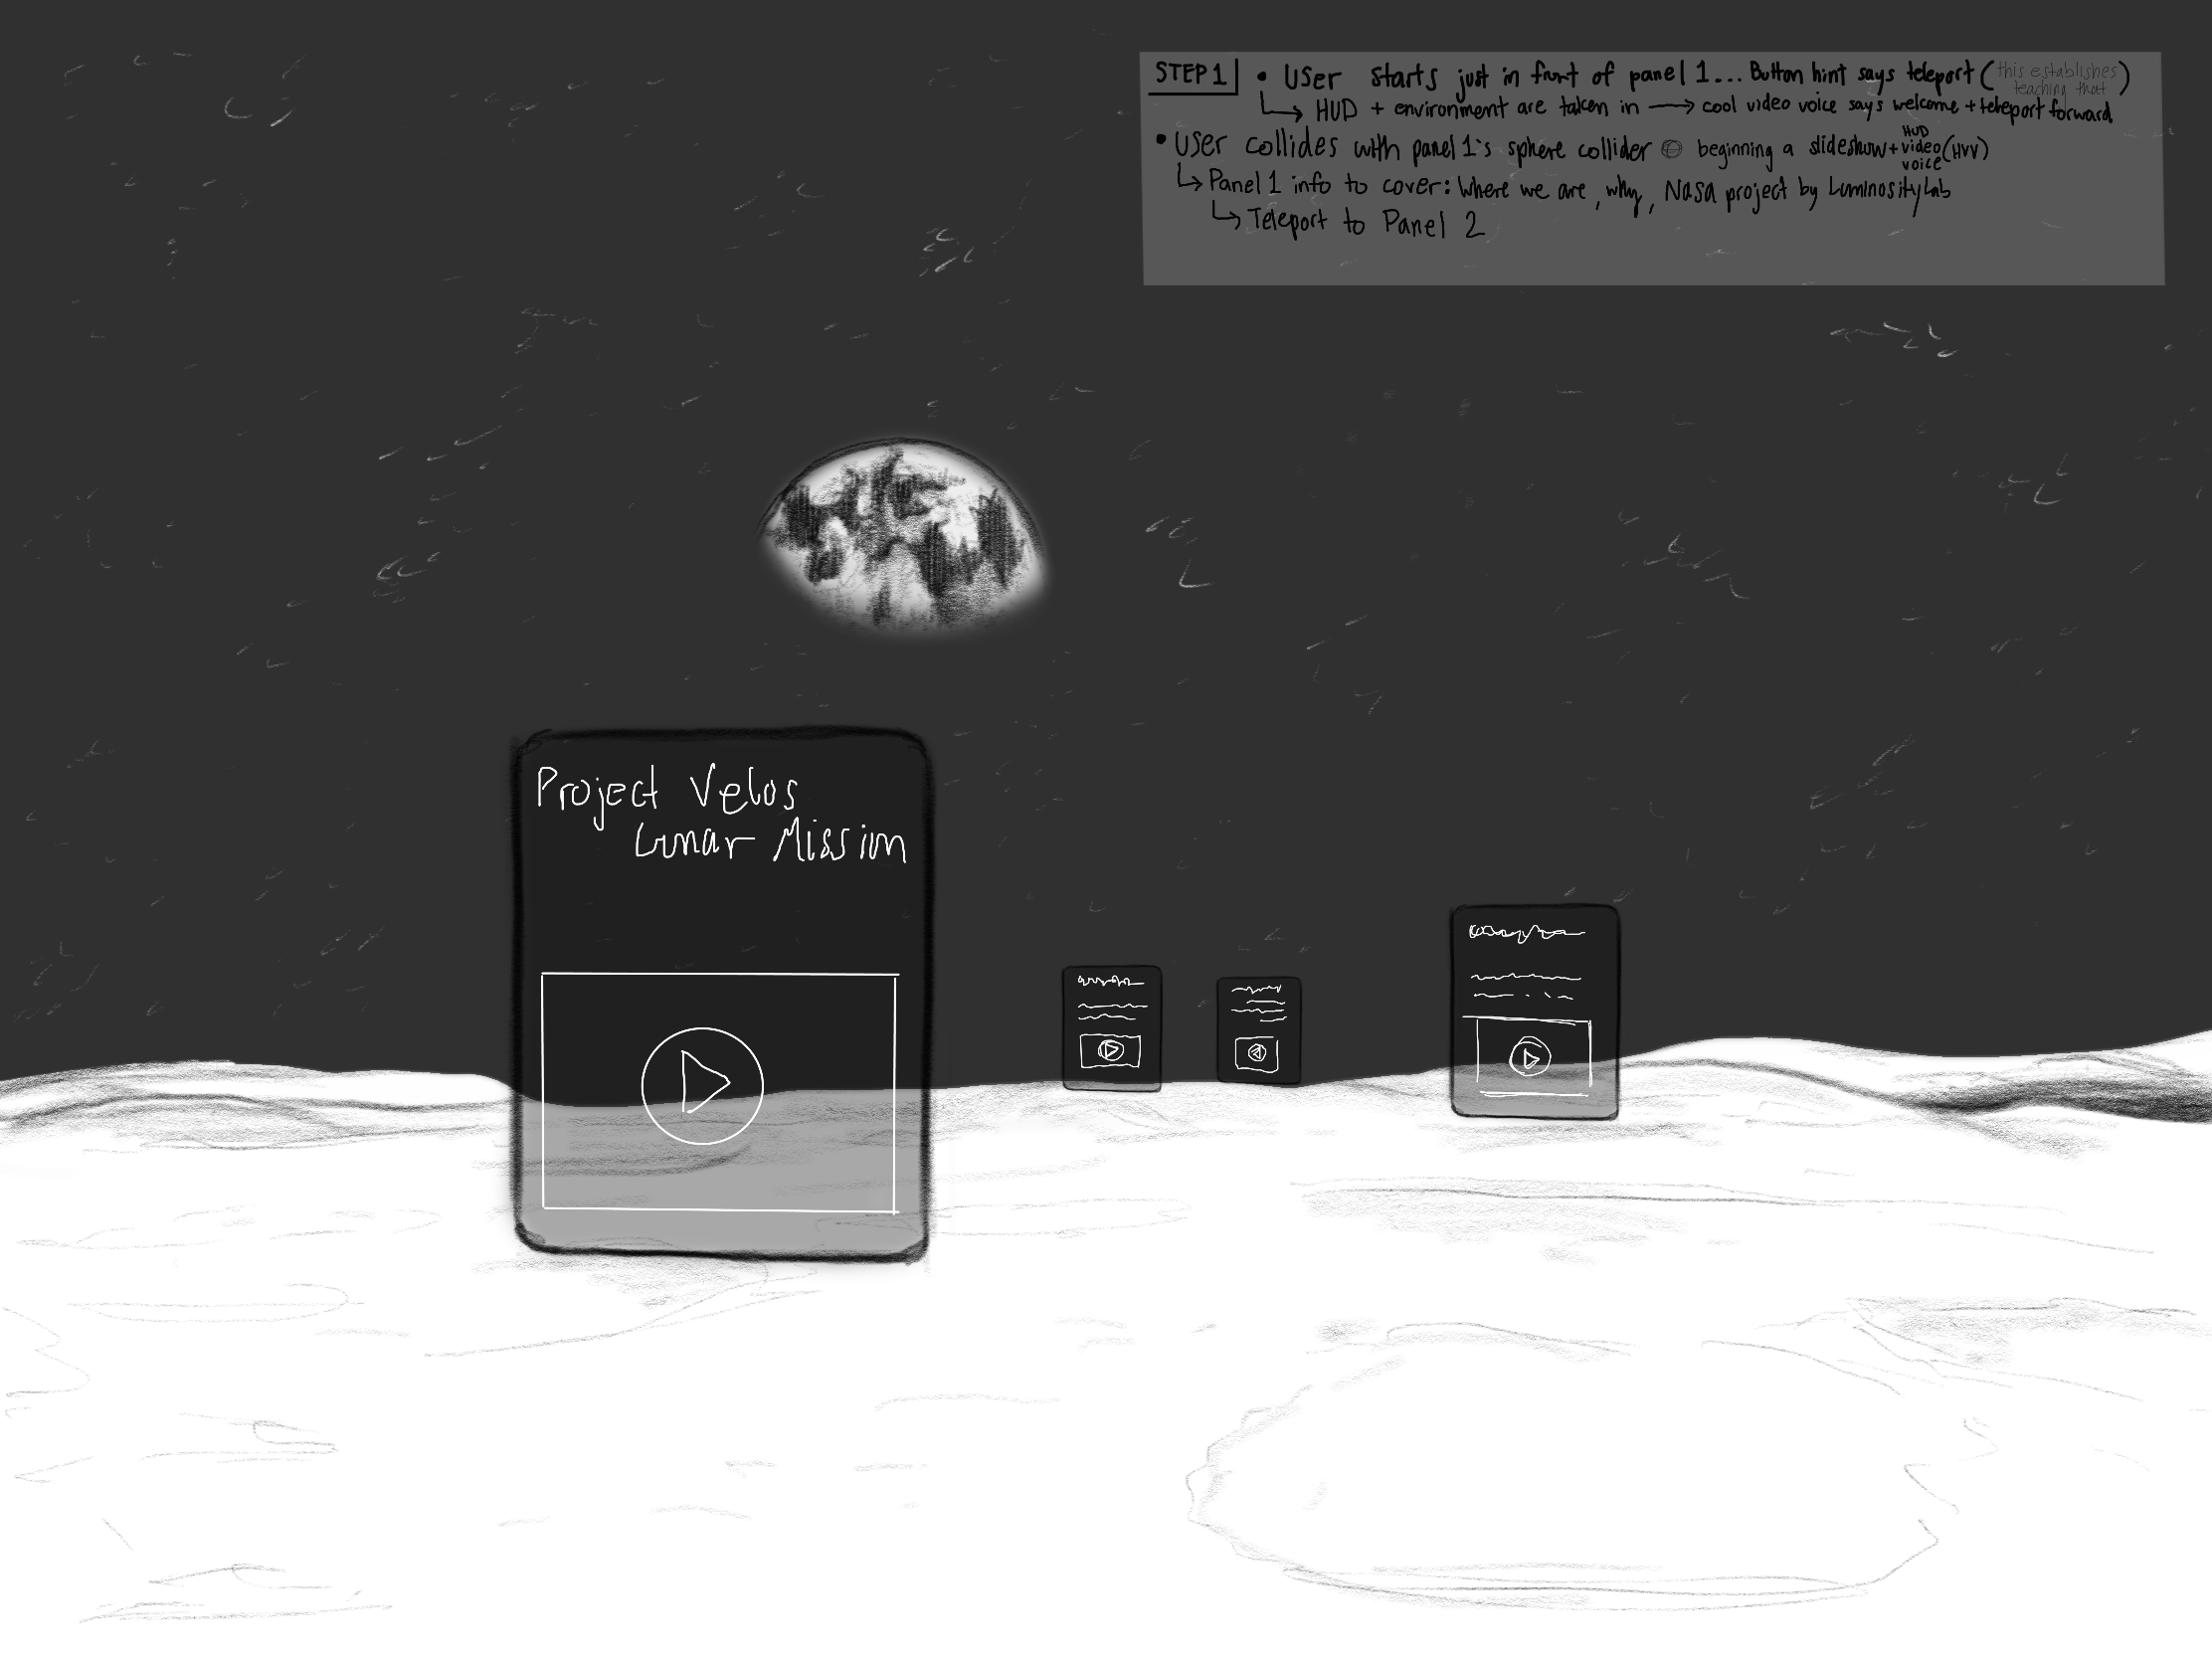 STEP 1 • User starts just in front of panel 1... Button hint says teleport (this establishes teaching that)
↳ HUD + environment are taken in → cool video voice says welcome + teleport forward
• User collides with panel 1's sphere collider beginning a slideshow + HUD video voice (HVV)
↳ Panel 1 info to cover: Where we are, why, Nasa project by LuminosityLab
↳ Teleport to Panel 2
Project Velos
Lunar Mission